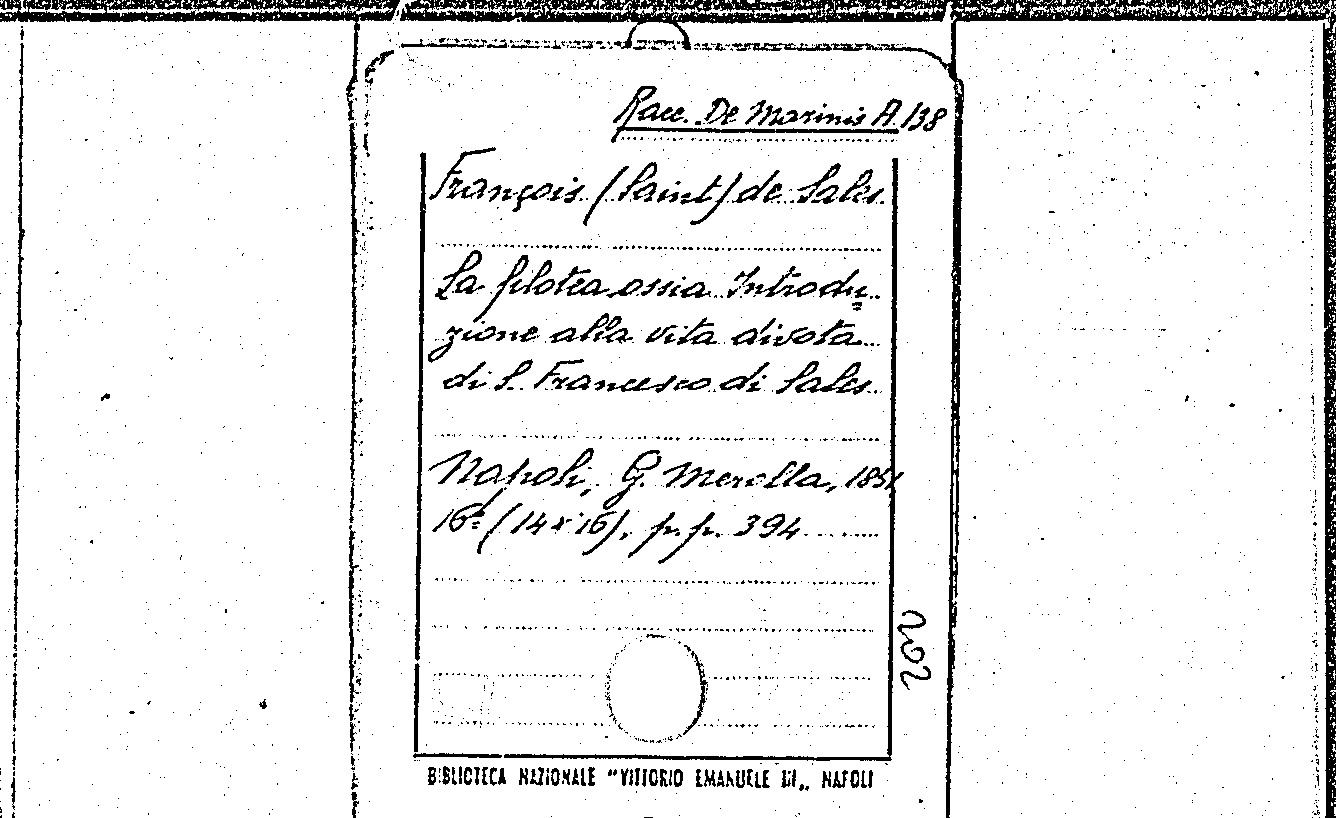 Racc. De Marinis A. 138
François (Saint) de Sales
La filotea ossia Introdu=
zione alla vita divota
di S. Francesco di Sales
Napoli, G. Merolla, 1851
16º (14 x 16), p.p. 394
202
BIBLIOTECA NAZIONALE "VITTORIO EMANUELE III„ NAPOLI